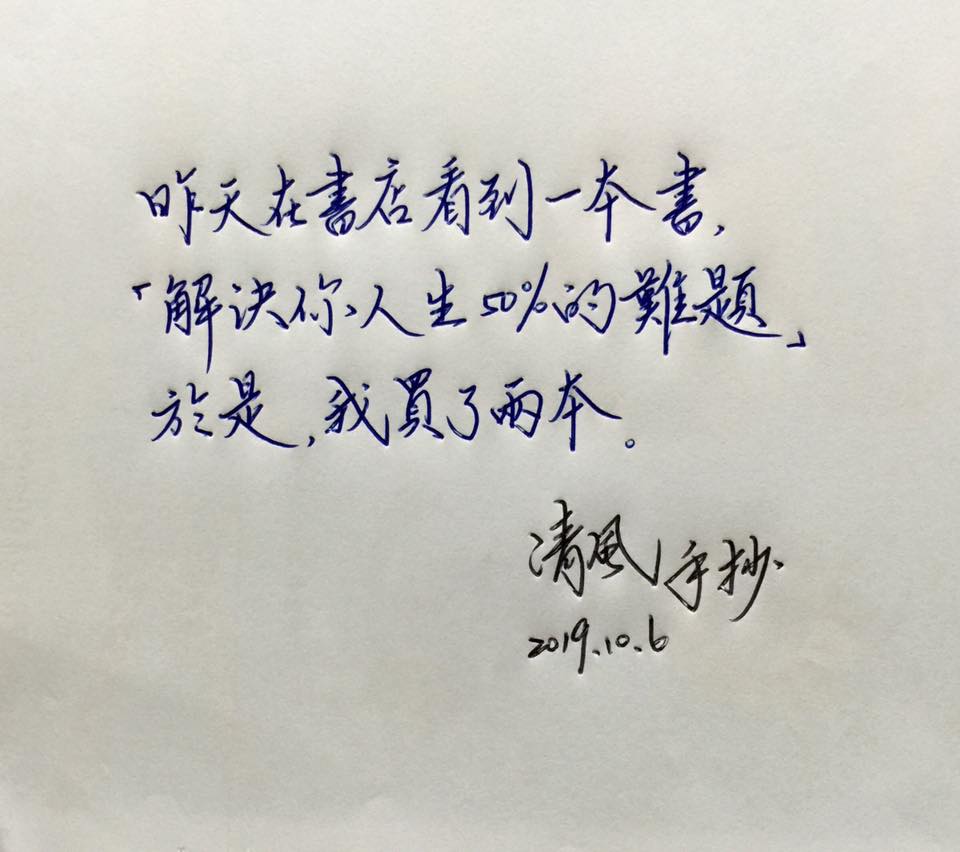 昨天在書店看到一本書,
「解決你人生50%的難題」
於是,我買了兩本。
清風手抄
2019.10.6